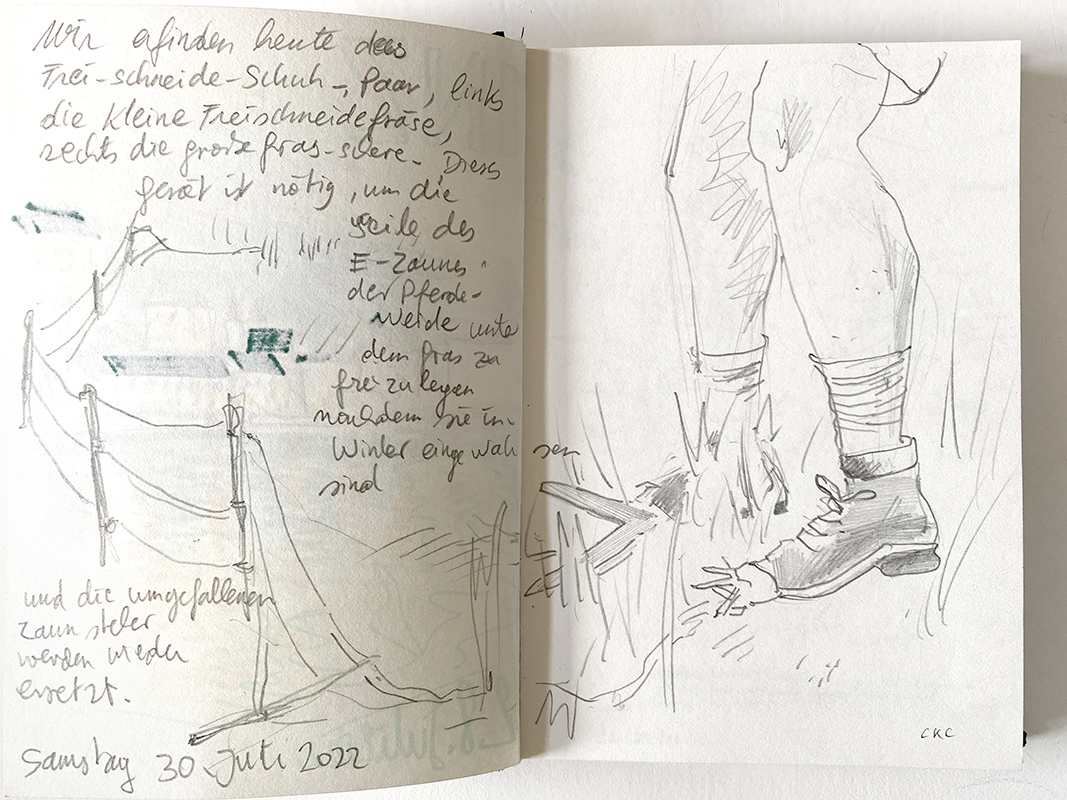 Wir erfinden heute das
Frei-schneide-Schuh-Paar, links
die kleine Freischneidefräse,
rechts die große Gras-schere. Dieses
gerät ist nötig, um die
seile des
E-Zauns
der Pferde-
weide unter
dem Gras zu
frei zu legen
nachdem sie im
Winter eingewahsen
sind
und die umgefallenen
Zaunsteher
werden wieder
ersetzt.
Samstag 30. Juli 2022
CKC